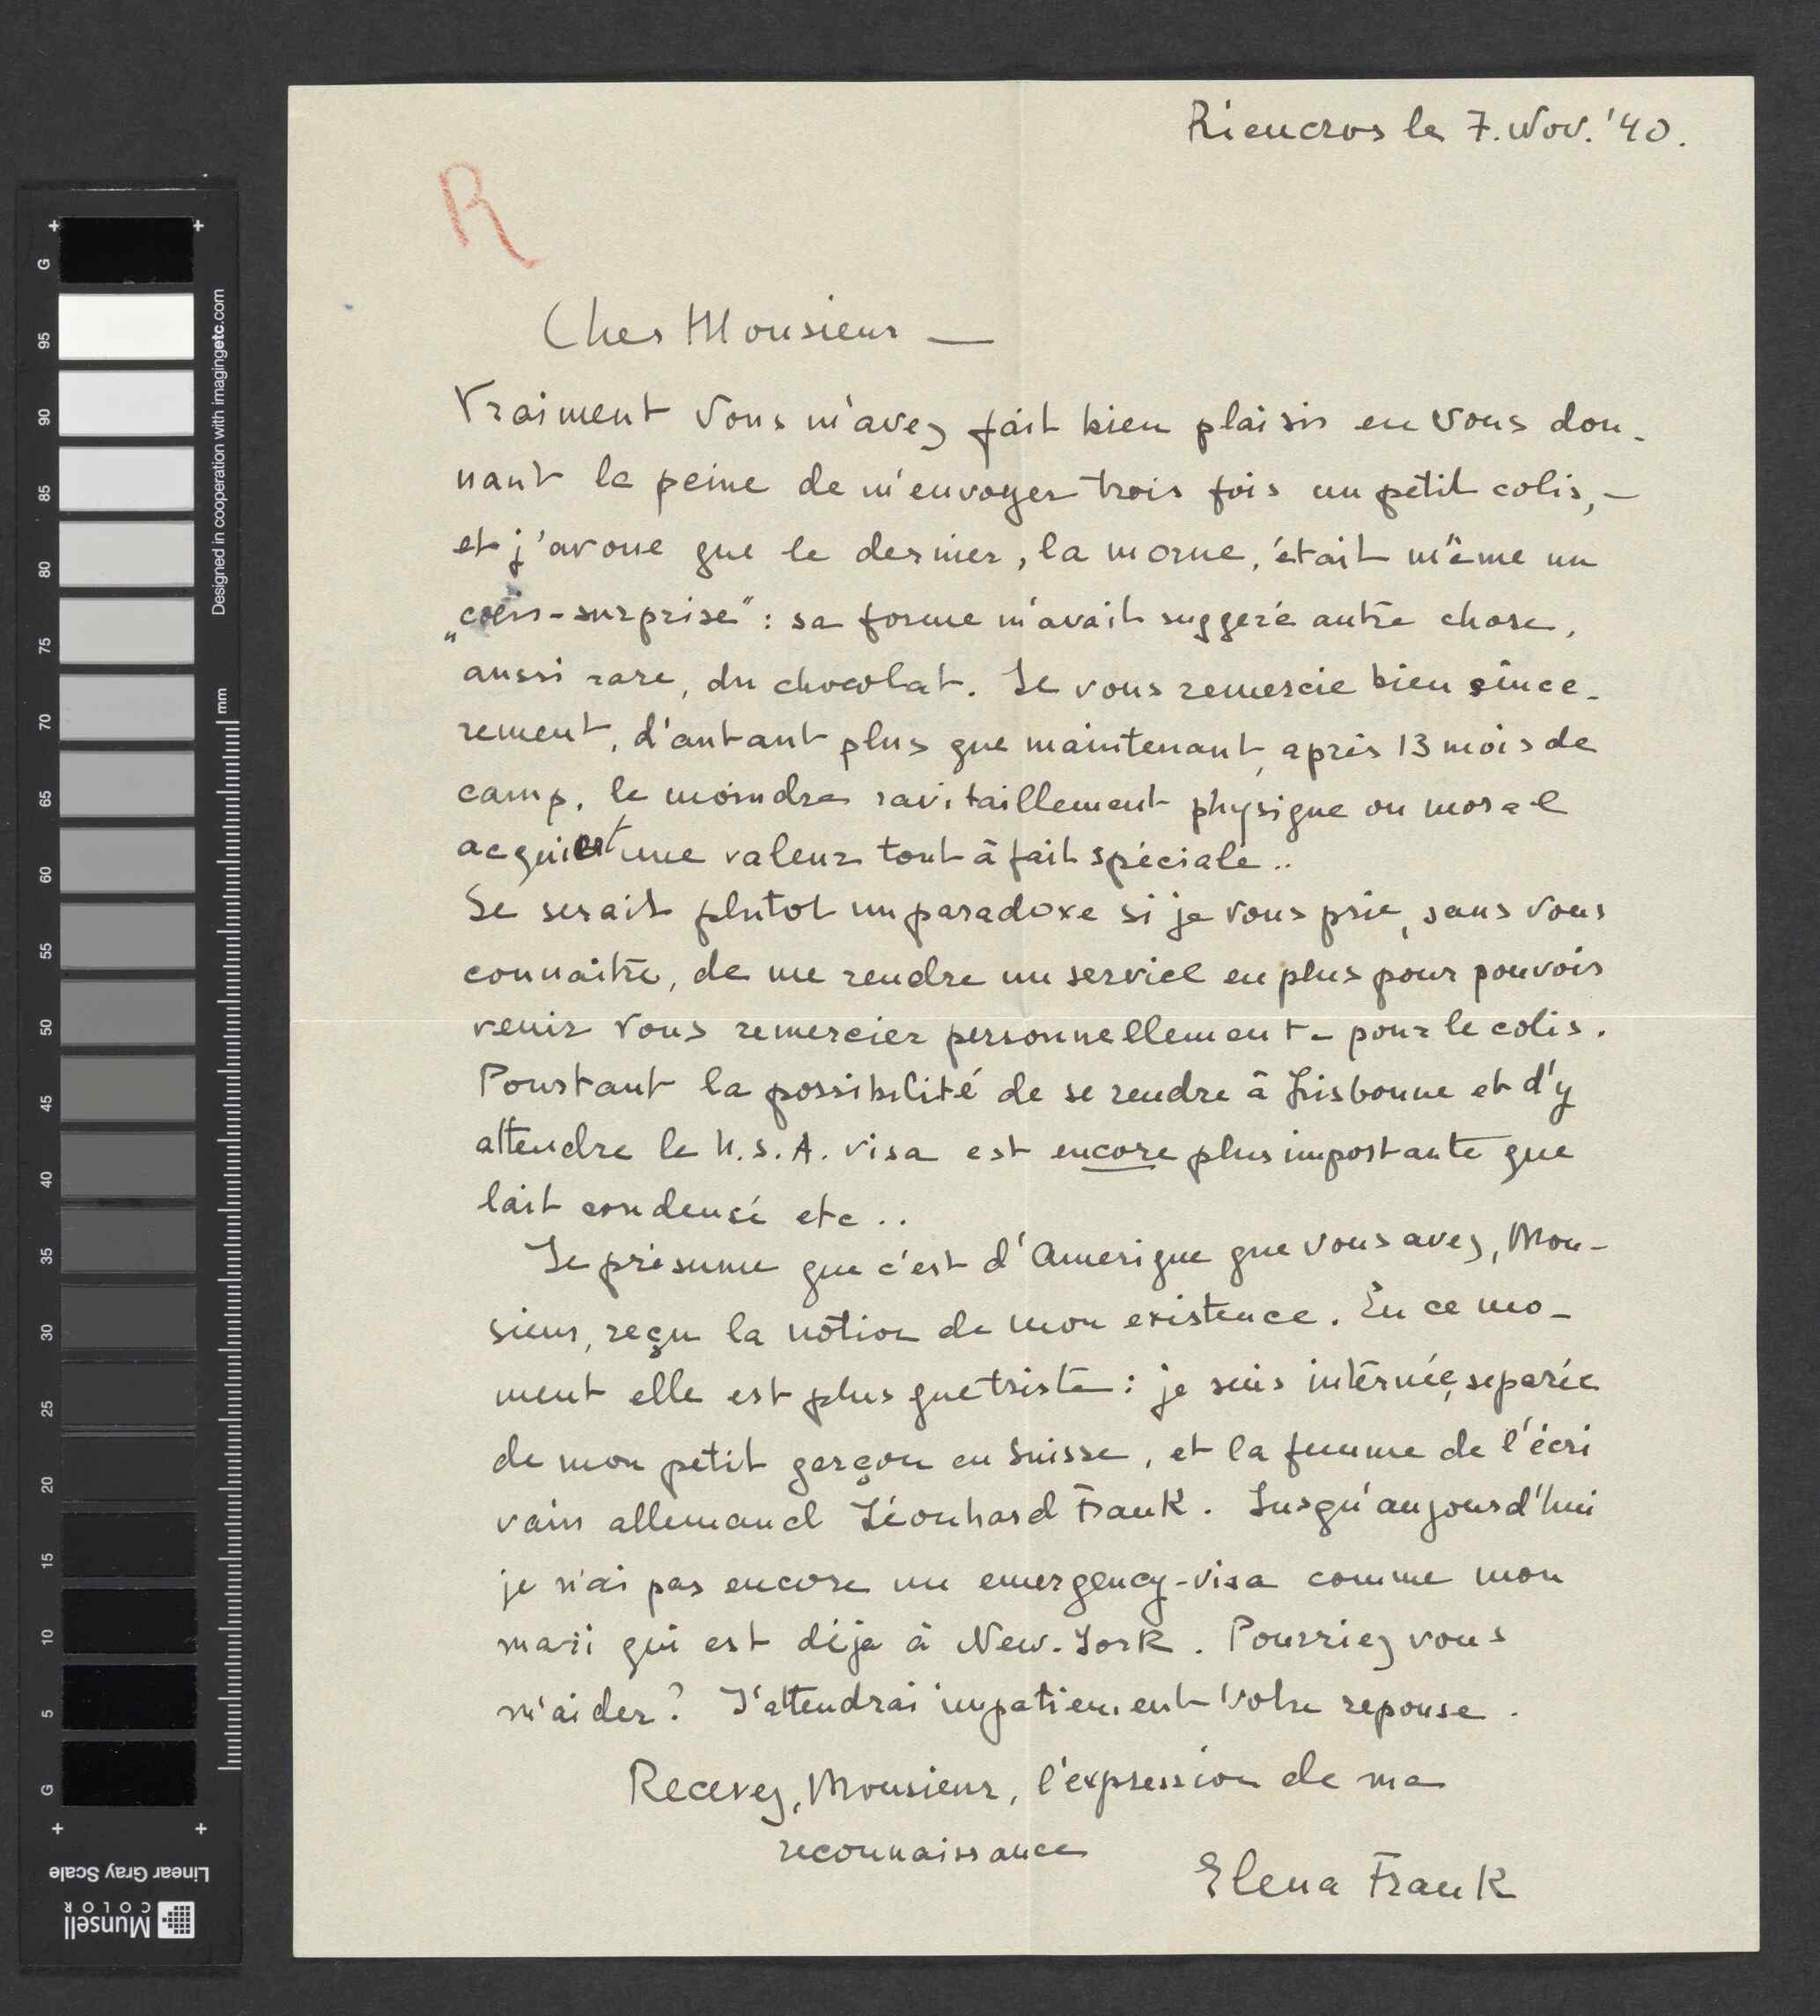 Rieucros le 7. Nov. '40.
R
Cher Monsieur —
Vraiment Vous m'avez fait bien plaisir en Vous don-
nant la peine de m'envoyer trois fois un petit colis, —
et j'avoue que le dernier, la morue, était même un
„colis-surprise": sa forme m'avait suggeré autre chose,
aussi rare, du chocolat. Je vous remercie bien since-
rement, d'autant plus que maintenant, après 13 mois de
camp, le moindre ravitaillement physique ou moral
acquiert une valeur tout à fait spéciale..
Se serait plutot un paradoxe si je vous prie, sans vous
connaitre, de me rendre un service en plus pour pouvoir
venir vous remercier personnellement – pour le colis.
Pourtant la possibilité de se rendre à Lisbonne et d'y
attendre le U.S.A. visa est encore plus importante que
lait condensé etc..
Je présume que c'est d'Amerique que vous avez, Mon-
sieur, reçu la notion de mon existence. En ce mo-
ment elle est plus que triste: je suis internée, separée
de mon petit garçon en Suisse, et la femme de l'écri
vain allemand Léonhard Frank. Jusqu'aujourd'hui
je n'ai pas encore un emergency-visa comme mon
mari qui est déja à New-York. Pourriez vous
m'aider? J'attendrai impatiement votre reponse.
Recevez, Monsieur, l'expression de ma
reconnaissance
Elena Frank
Designed in cooperation with imagingetc.com
mm
G
95
90
85
80
75
70
65
60
55
50
45
40
35
30
25
20
15
10
5
G
Linear Gray Scale
Munsell
COLOR